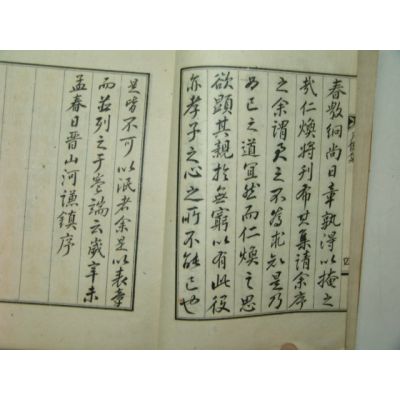 春敷絅尚日章孰得以掩之
哉仁煥將刊布其集請余序
之余謂君之不為求知是乃
為己之道宜然而仁煥之思
欲顯其親於無窮以有此役
亦孝子之心之所不能已也
是皆不可以泯者余是以表章
而並列之于卷端云歲辛未
孟春日晉山河謙鎮序